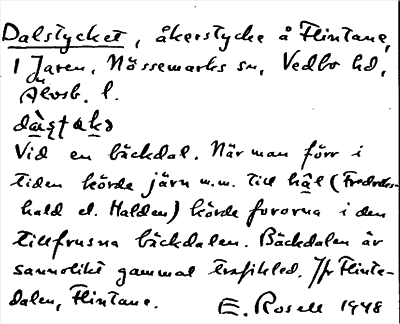 Dalstycket, åkerstycke å Flintane,
1 Jaren, Nössemarks sn, Vedbo hd,
Älvsb. l.
Vid en bäckdal. När man förr i
tiden körde järn m.m. till hål (Fredriks-
hald el. Halden) körde fororna i den
tillfrusna bäckdalen. Bäckdalen är
sannolikt gammal trafikled. Jfr Flinte-
dalen, Flintane. E. Rosell 1948